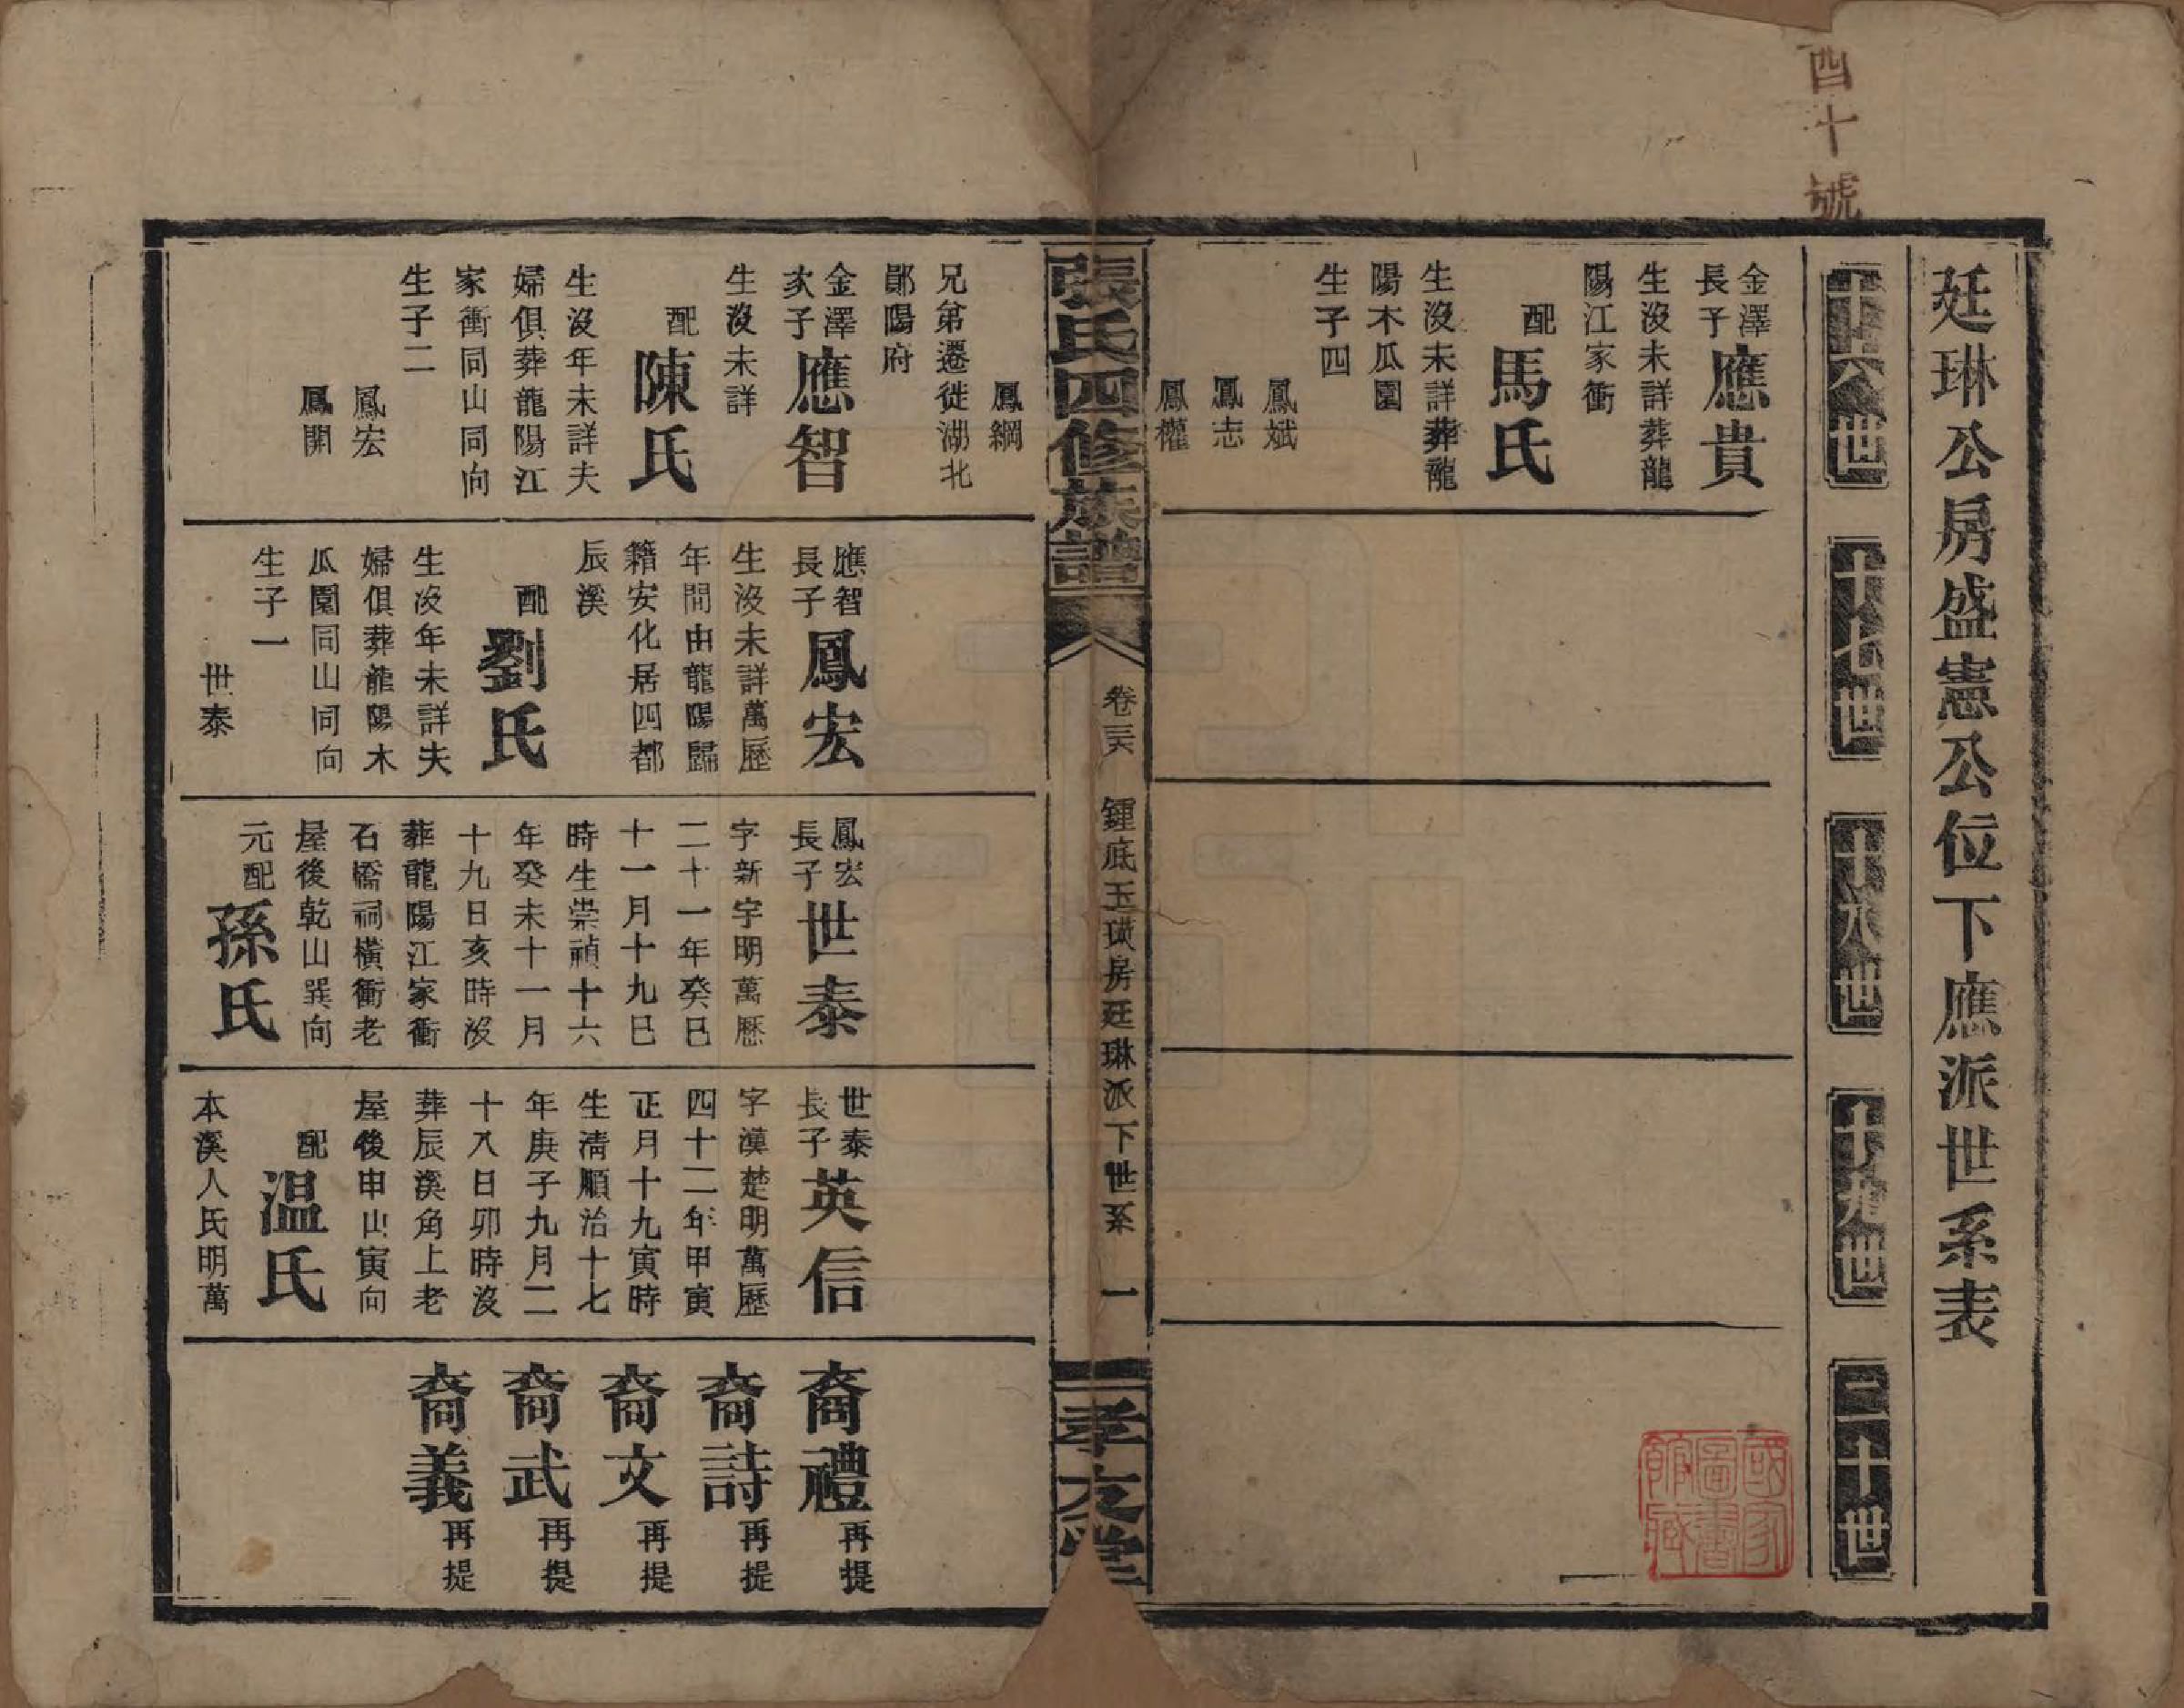 四十號
廷琳公房盛憲公位下應派世系表
十六世
十七世
十八世
十九世
二十世
金澤
長子
應貴
生沒未詳葬龍
陽江家衝
配
馬氏
生沒未詳葬龍
陽木瓜園
生子四
鳳斌
鳳志
鳳權
國家圖書館藏
張氏四修族譜
卷三六
鍾底玉璜房廷琳派下世系
一
孝友堂
鳳綱
兄弟遷徙湖北
鄖陽府
金澤
次子
應智
生沒未詳
配
陳氏
生沒年未詳夫
婦俱葬龍陽江
家衝同山同向
生子二
鳳宏
鳳開
應智
長子
鳳宏
生沒未詳萬歷
年間由龍陽歸
籍安化居四都
辰溪
配
劉氏
生沒年未詳夫
婦俱葬龍陽木
瓜園同山同向
生子一
世泰
鳳宏
長子
世泰
字新宇明萬歷
二十一年癸巳
十一月十九巳
時生崇禎十六
年癸未十一月
十九日亥時沒
葬龍陽江家衝
石橋祠橫衝老
屋後乾山巽向
元配
孫氏
世泰
長子
英信
字漢楚明萬歷
四十二年甲寅
正月十九寅時
生清順治十七
年庚子九月二
十八日卯時沒
葬辰溪角上老
屋後申山寅向
配
温氏
本溪人氏明萬
裔禮
再提
裔詩
再提
裔文
再提
裔武
再提
裔義
再提